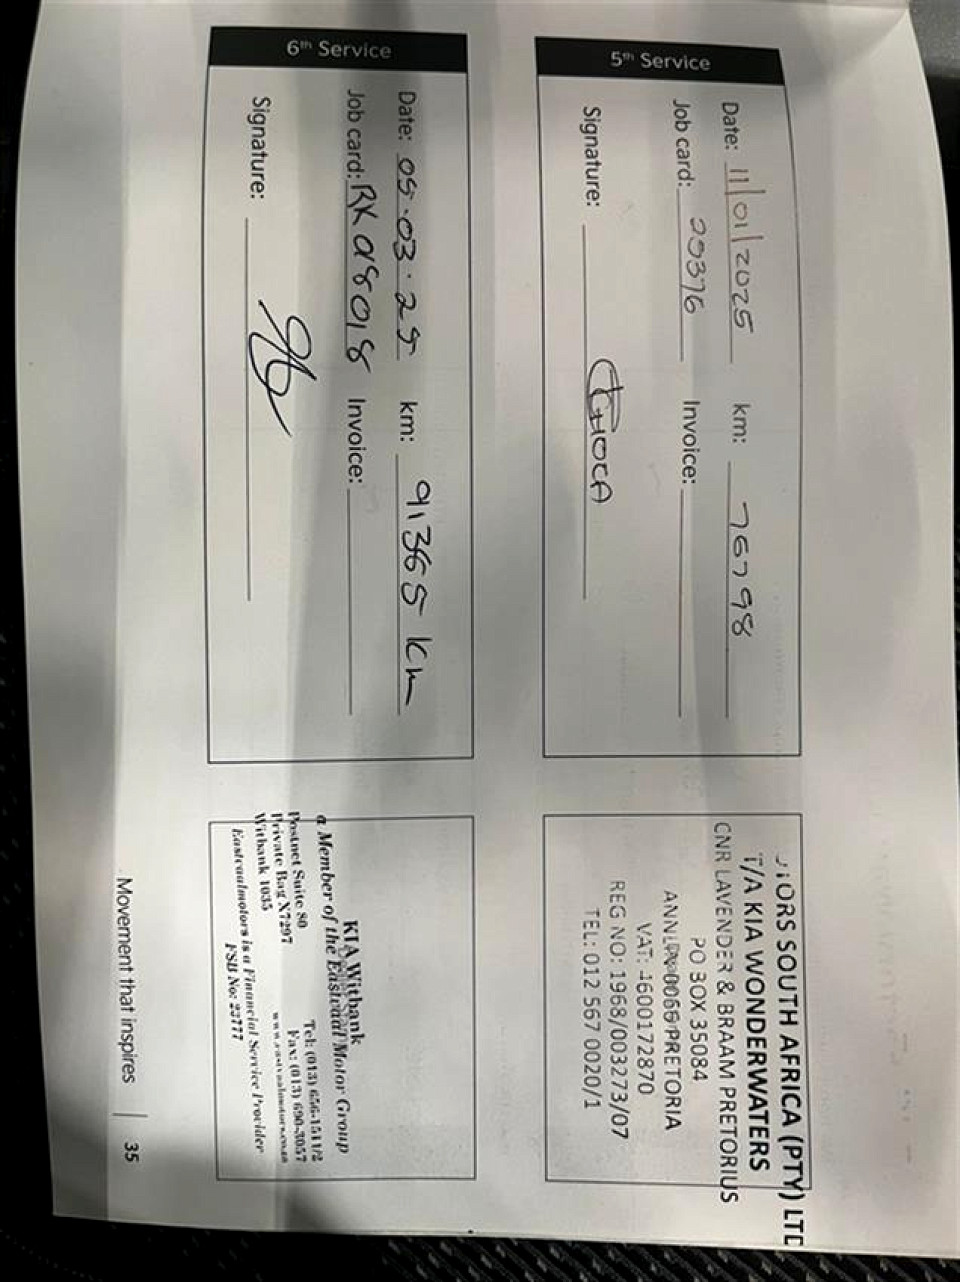 5th Service
Date: 11/01/2025 km: 76798
Job card: 25376 Invoice:
Signature:
MOTORS SOUTH AFRICA (PTY) LTD
T/A KIA WONDERWATERS
CNR LAVENDER & BRAAM PRETORIUS
PO BOX 35084
PRETORIA
VAT: 4600172870
REG NO: 1968/003273/07
TEL: 012 567 0020/1
6th Service
Date: 05.03.25 km: 91365 km
Job card: RKA8018 Invoice:
Signature:
KIA Witbank
a Member of the Eastvaal Motor Group
Postnet Suite 80 Tel: (013) 656-1511/2
Private Bag X7297 Fax: (013) 690-3057
Witbank 1035 www.eastvaalmotors.co.za
Eastvaalmotors is a Financial Service Provider
FSB No: 23777
Movement that inspires 35